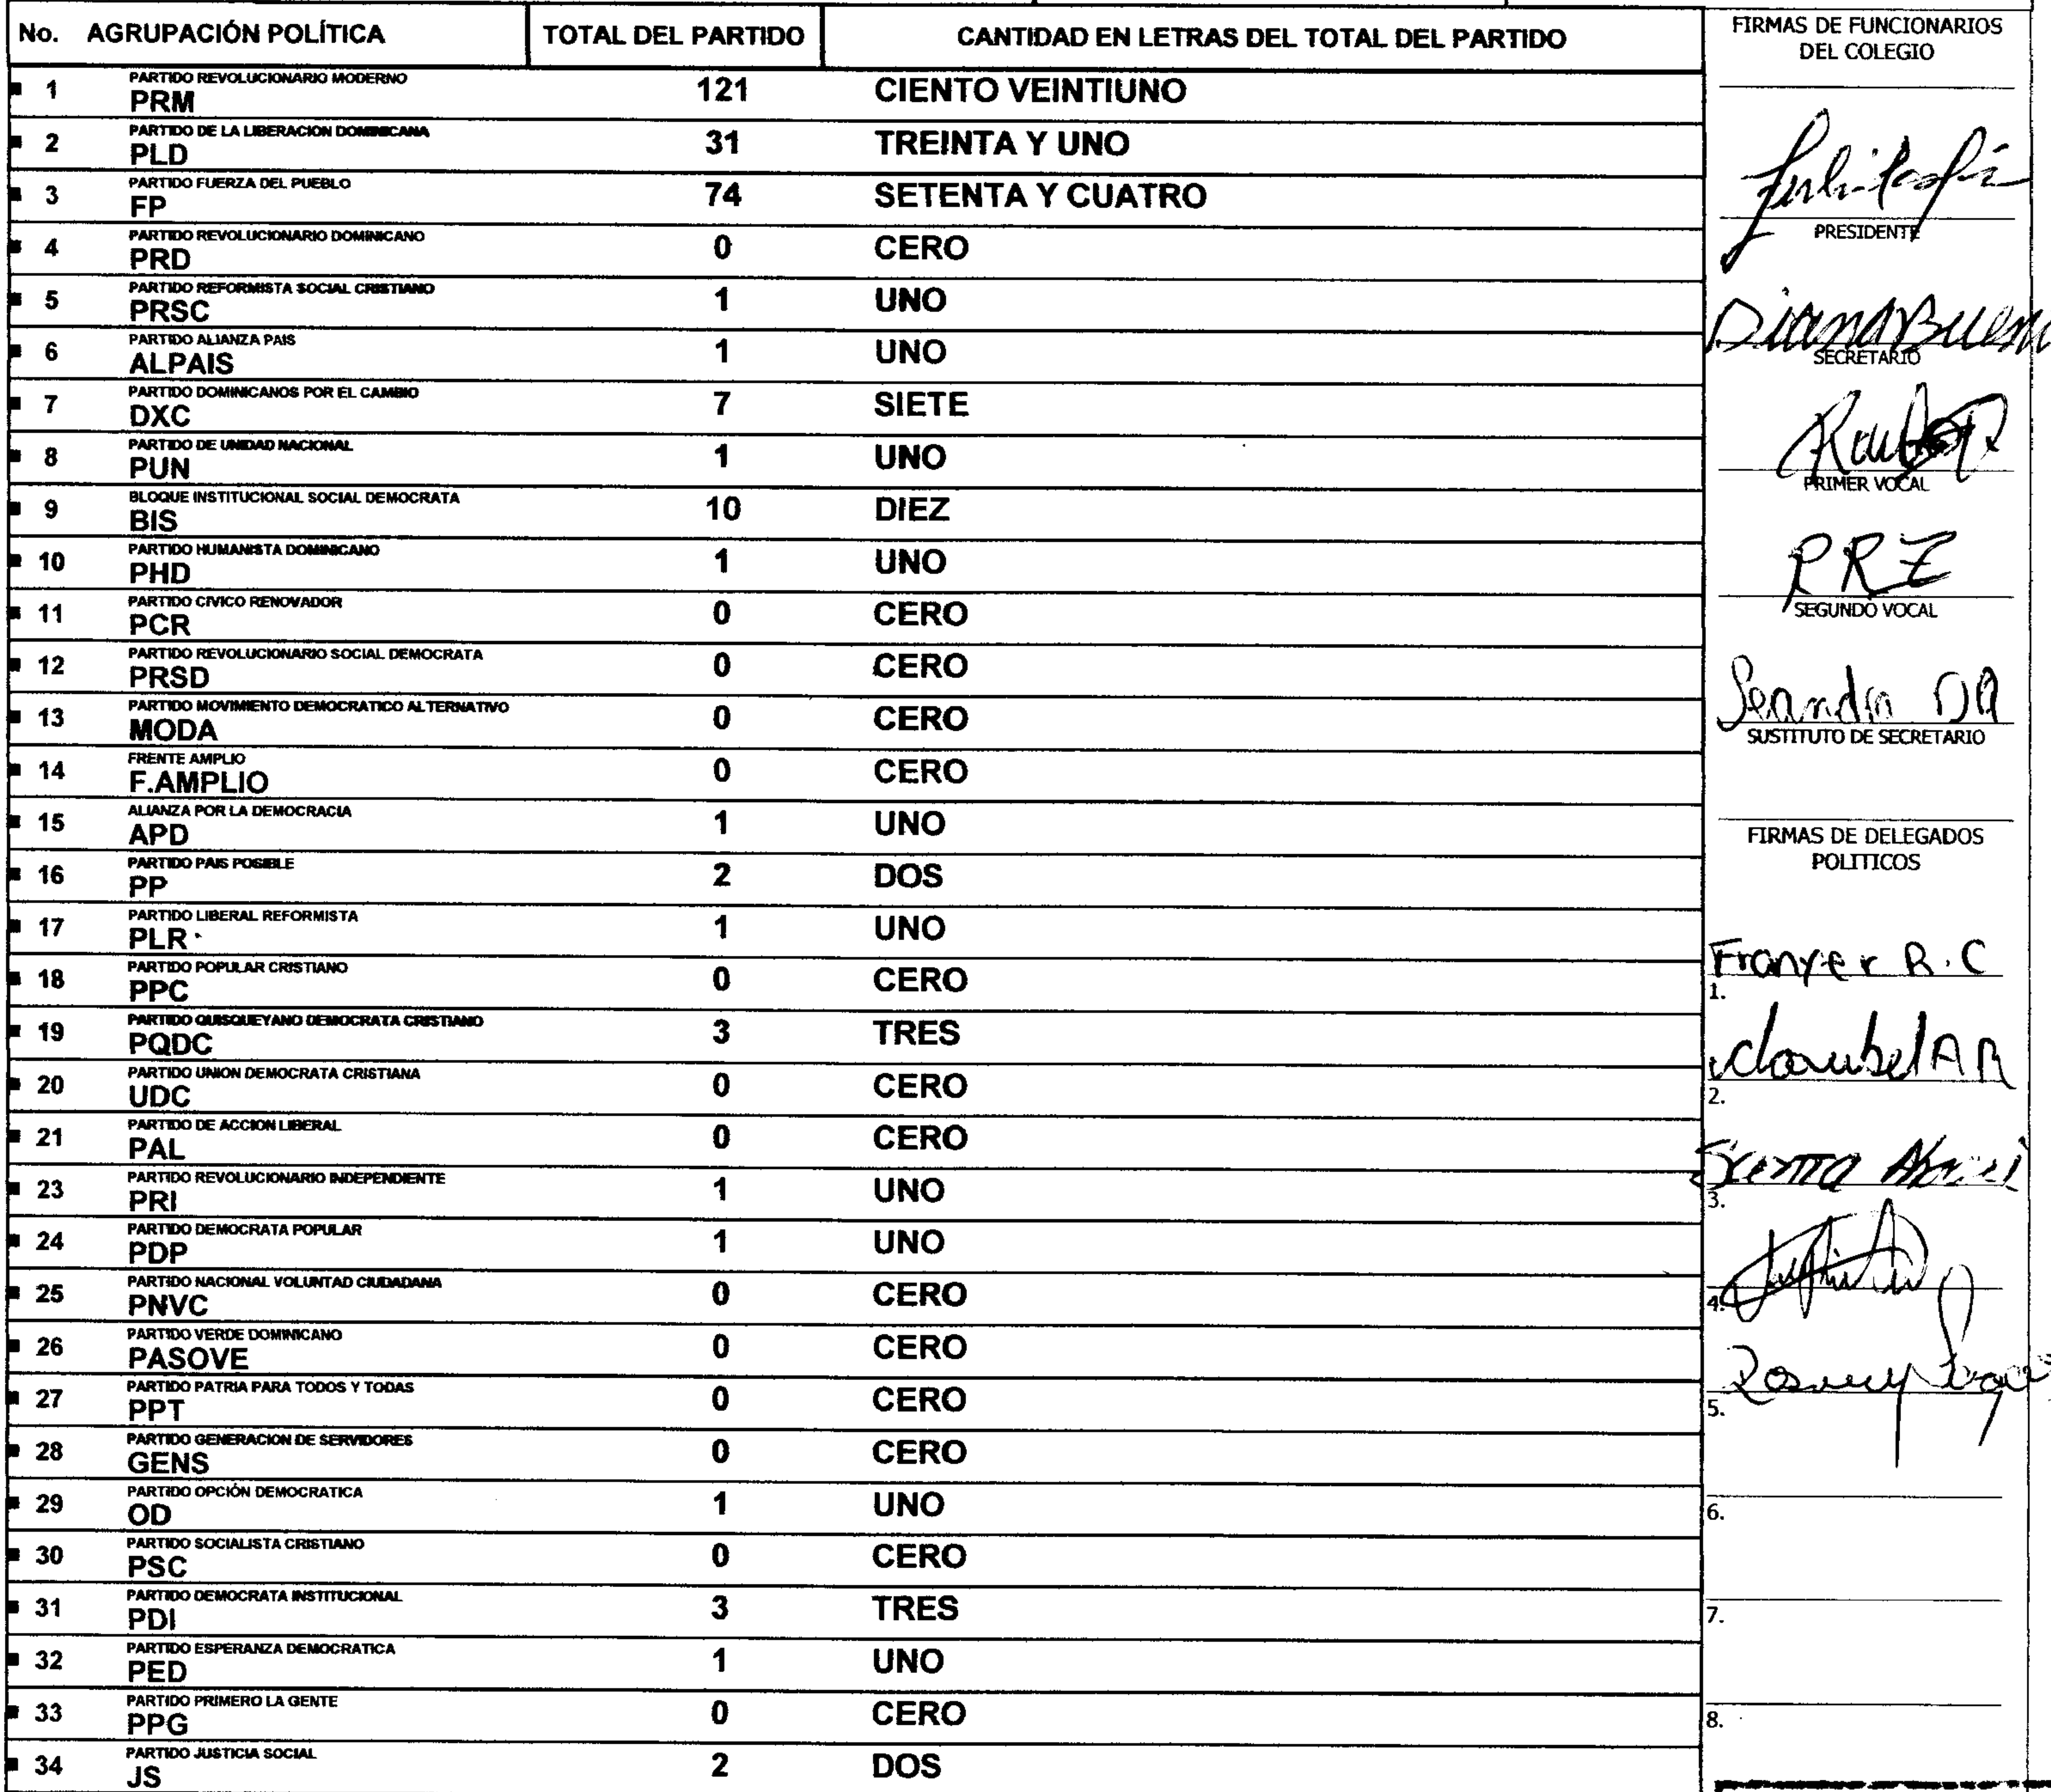 No. AGRUPACIÓN POLÍTICA TOTAL DEL PARTIDO CANTIDAD EN LETRAS DEL TOTAL DEL PARTIDO
1 PARTIDO REVOLUCIONARIO MODERNO
PRM 121 CIENTO VEINTIUNO
2 PARTIDO DE LA LIBERACION DOMINICANA
PLD 31 TREINTA Y UNO
3 PARTIDO FUERZA DEL PUEBLO
FP 74 SETENTA Y CUATRO
4 PARTIDO REVOLUCIONARIO DOMINICANO
PRD 0 CERO
5 PARTIDO REFORMISTA SOCIAL CRISTIANO
PRSC 1 UNO
6 PARTIDO ALIANZA PAIS
ALPAIS 1 UNO
7 PARTIDO DOMINICANOS POR EL CAMBIO
DXC 7 SIETE
8 PARTIDO DE UNIDAD NACIONAL
PUN 1 UNO
9 BLOQUE INSTITUCIONAL SOCIAL DEMOCRATA
BIS 10 DIEZ
10 PARTIDO HUMANISTA DOMINICANO
PHD 1 UNO
11 PARTIDO CIVICO RENOVADOR
PCR 0 CERO
12 PARTIDO REVOLUCIONARIO SOCIAL DEMOCRATA
PRSD 0 CERO
13 PARTIDO MOVIMIENTO DEMOCRATICO ALTERNATIVO
MODA 0 CERO
14 FRENTE AMPLIO
F.AMPLIO 0 CERO
15 ALIANZA POR LA DEMOCRACIA
APD 1 UNO
16 PARTIDO PAIS POSIBLE
PP 2 DOS
17 PARTIDO LIBERAL REFORMISTA
PLR 1 UNO
18 PARTIDO POPULAR CRISTIANO
PPC 0 CERO
19 PARTIDO QUISQUEYANO DEMOCRATA CRISTIANO
PQDC 3 TRES
20 PARTIDO UNION DEMOCRATA CRISTIANA
UDC 0 CERO
21 PARTIDO DE ACCION LIBERAL
PAL 0 CERO
23 PARTIDO REVOLUCIONARIO INDEPENDIENTE
PRI 1 UNO
24 PARTIDO DEMOCRATA POPULAR
PDP 1 UNO
25 PARTIDO NACIONAL VOLUNTAD CIUDADANA
PNVC 0 CERO
26 PARTIDO VERDE DOMINICANO
PASOVE 0 CERO
27 PARTIDO PATRIA PARA TODOS Y TODAS
PPT 0 CERO
28 PARTIDO GENERACION DE SERVIDORES
GENS 0 CERO
29 PARTIDO OPCIÓN DEMOCRATICA
OD 1 UNO
30 PARTIDO SOCIALISTA CRISTIANO
PSC 0 CERO
31 PARTIDO DEMOCRATA INSTITUCIONAL
PDI 3 TRES
32 PARTIDO ESPERANZA DEMOCRATICA
PED 1 UNO
33 PARTIDO PRIMERO LA GENTE
PPG 0 CERO
34 PARTIDO JUSTICIA SOCIAL
JS 2 DOS
FIRMAS DE FUNCIONARIOS
DEL COLEGIO
PRESIDENTE
Diana Bueno
SECRETARIO
PRIMER VOCAL
PRZ
SEGUNDO VOCAL
SUSTITUTO DE SECRETARIO
FIRMAS DE DELEGADOS
POLITICOS
Franyer R.C
1.
2.
3.
4.
5.
6.
7.
8.